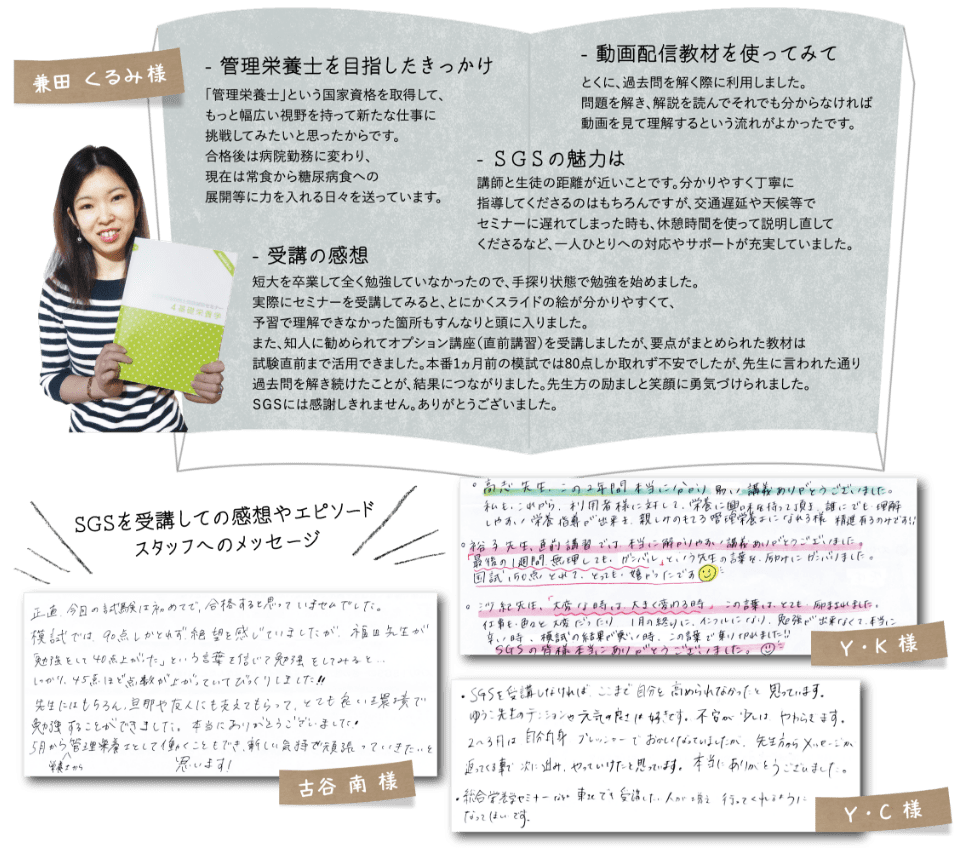 兼田 くるみ 様
- 管理栄養士を目指したきっかけ
「管理栄養士」という国家資格を取得して、
もっと幅広い視野を持って新たな仕事に
挑戦してみたいと思ったからです。
合格後は病院勤務に変わり、
現在は常食から糖尿病食への
展開等に力を入れる日々を送っています。
- 動画配信教材を使ってみて
とくに、過去問を解く際に利用しました。
問題を解き、解説を読んでそれでも分からなければ
動画を見て理解するという流れがよかったです。
- SGSの魅力は
講師と生徒の距離が近いことです。分かりやすく丁寧に
指導してくださるのはもちろんですが、交通遅延や天候等で
セミナーに遅れてしまった時も、休憩時間を使って説明し直して
くださるなど、一人ひとりへの対応やサポートが充実していました。
- 受講の感想
短大を卒業して全く勉強していなかったので、手探り状態で勉強を始めました。
実際にセミナーを受講してみると、とにかくスライドの絵が分かりやすくて、
予習で理解できなかった箇所もすんなりと頭に入りました。
また、知人に勧められてオプション講座(直前講習)を受講しましたが、要点がまとめられた教材は
試験直前まで活用できました。本番1ヵ月前の模試では80点しか取れず不安でしたが、先生に言われた通り
過去問を解き続けたことが、結果につながりました。先生方の励ましと笑顔に勇気づけられました。
SGSには感謝しきれません。ありがとうございました。
SGSを受講しての感想やエピソード
スタッフへのメッセージ
正直、今回の試験は初めてで、合格すると思っていませんでした。
模試では、90点しかとれず絶望を感じていましたが、福田先生が
「勉強をして40点上がった」という言葉を信じて勉強をしてみると…
しっかり、45点ほど点数が上がっていてびっくりしました!!
先生にはもちろん、旦那や友人にも支えてもらって、とても良い環境で
勉強することができました。本当にありがとうございました!
5月から管理栄養士として働くこともでき、新しい気持で頑張っていきたいと
栄養士から
思います!
古谷 南 様
。高志先生、この2年間本当に分かり易い講義ありがとうございました。
私も、これから、利用者様に対して、栄養に興味を持って頂き、誰にでも理解
しやすい栄養指導が出来る、親しみのもてる管理栄養士になれる様 精進有るのみです!!
。裕子先生、直前講習では、本当に解かりやすい講義ありがとうございました。
「最後の1週間無理しても、ガンバレ」という先生の言葉を、励みにガンバりました。
国試、150点とれて、とっても嬉しかったです
「大変な時は、大きく変われる時」この言葉は、とても、励まされました。
仕事も色々と大変だったり、1月の終りに、インフルになり、勉強が出来なくて、本当に
辛い時、模試の結果が悪い時、この言葉で乗り切れました!!
SGSの皆様本当にありがとうございました。
Y・K 様
・SGSを受講しなければ、ここまで自分を高められなかったと思っています。
ゆうこ先生のテンションや元気の良さは好きです。不安が少しは やわらぎます。
2〜3月は自分自身 プレッシャーで おかしくなっていましたが、先生方からメッセージが
返ってくる事で 次に進み、やっていけたと思っています。本当にありがとうございました。
なってほしいです。
Y・C 様